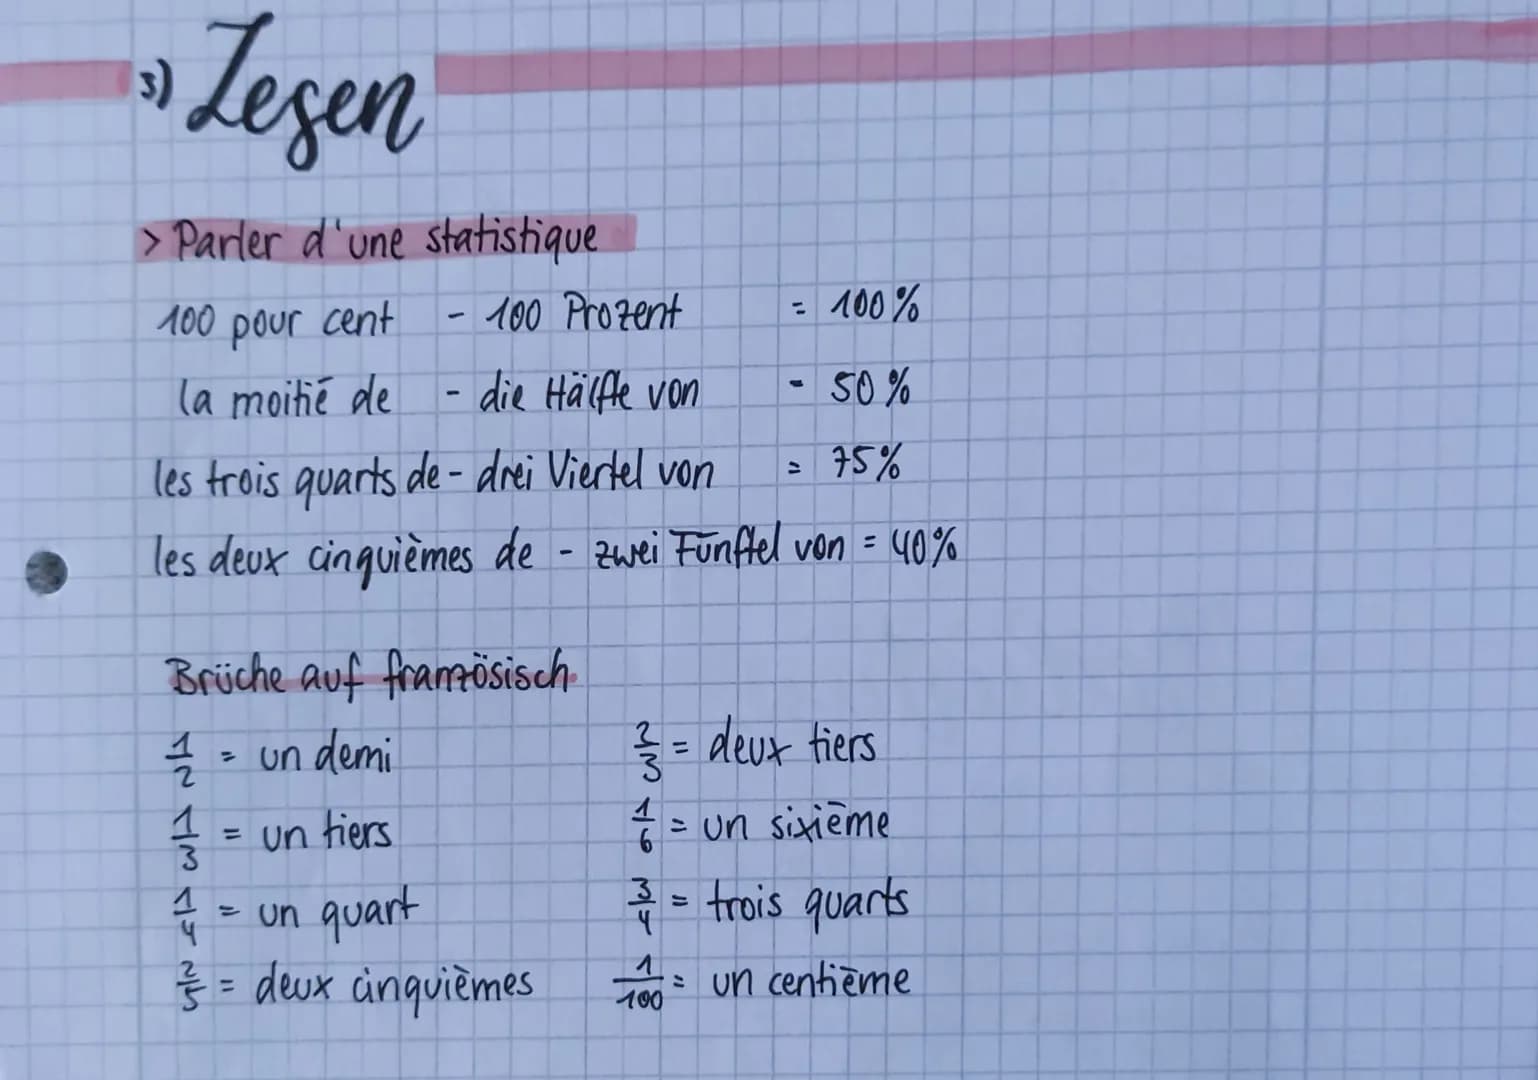 3) Lesen
> Parler d'une statistique
100 pour cent - 100 Prozent = 100%
la moitié de - die Hälfte von - 50%
les trois quarts de - drei Viertel von = 75%
les deux cinquièmes de - zwei Fünftel von = 40%
Brüche auf französisch
1/2 = un demi
2/3 = deux tiers
1/3 = un tiers
1/6 = un sixième
1/4 = un quart
3/4 = trois quarts
2/5 = deux cinquièmes
1/100 = un centième